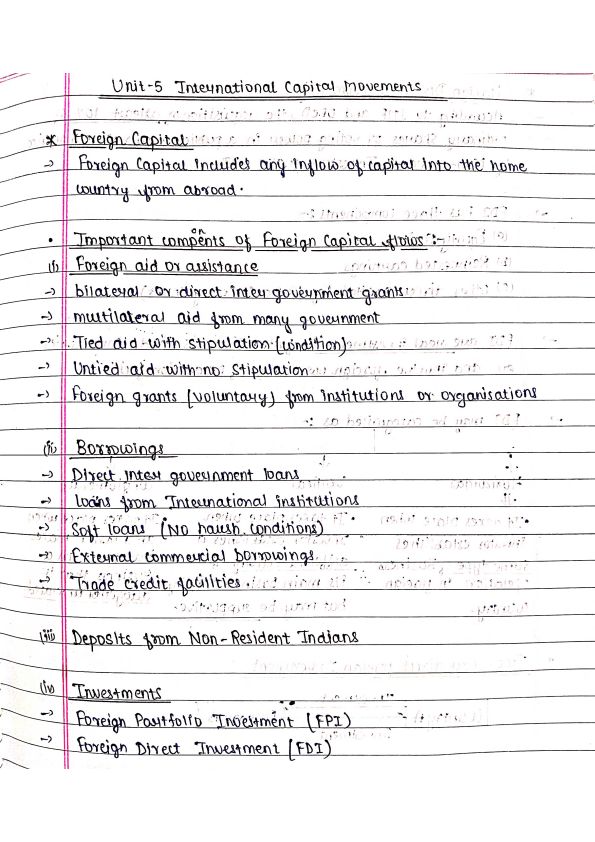 Unit-5 International Capital Movements
* Foreign Capital
→ Foreign Capital includes any inflow of capital into the home
country from abroad.
• Important compents of Foreign Capital flows :-
(i) Foreign aid or assistance
→ bilateral or direct inter government grants
→ multilateral aid from many government
→ Tied aid with stipulation (condition)
→ Untied aid with no stipulation
→ Foreign grants (voluntary) from institutions or organisations
(ii) Borrowings
→ Direct inter government loans
→ loans from International institutions
→ Soft loans (No harsh conditions)
→ External commercial borrowings
→ Trade credit facilities.
(iii) Deposits from Non-Resident Indians
(iv) Investments
→ Foreign Portfolio Investment (FPI)
→ Foreign Direct Investment (FDI)